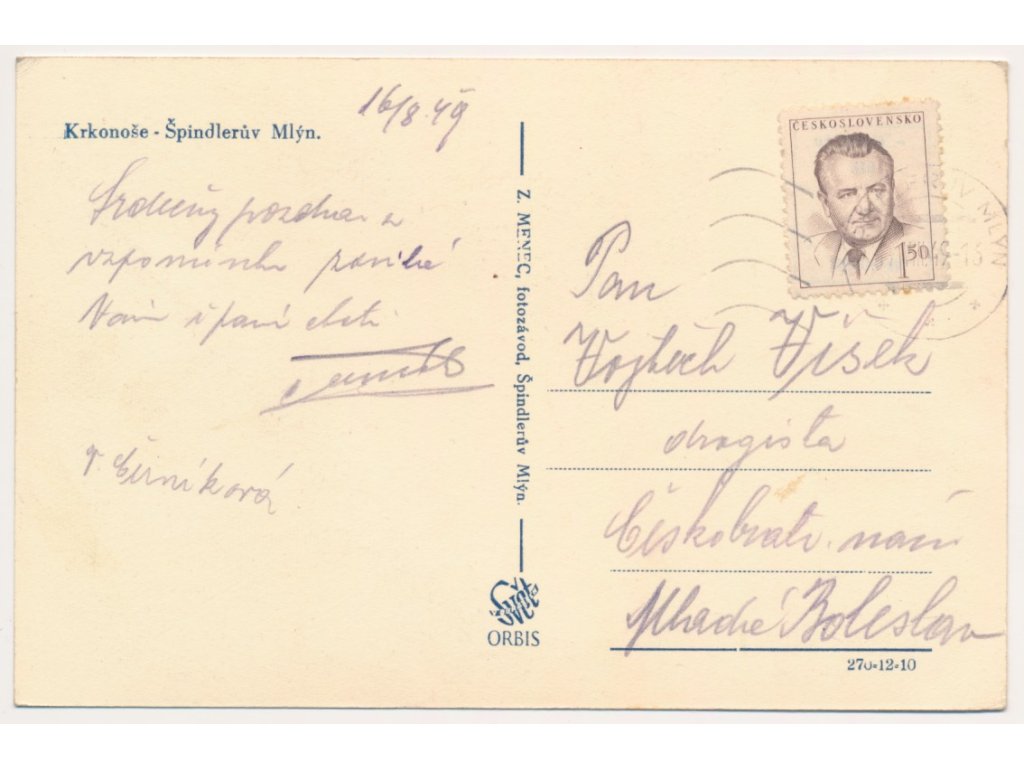 Krkonoše - Špindlerův Mlýn.
16/8.49
Srdečný pozdrav a
vzpomínku
Vám i paní
Černíková
Z. MENEC, fotozávod, Špindlerův Mlýn.
Svět
ORBIS
ČESKOSLOVENSKO
150
MLÝN
Pan
Vojtěch Víšek
drogista
Českobratr. nám
Mladá Boleslav
270-12-10